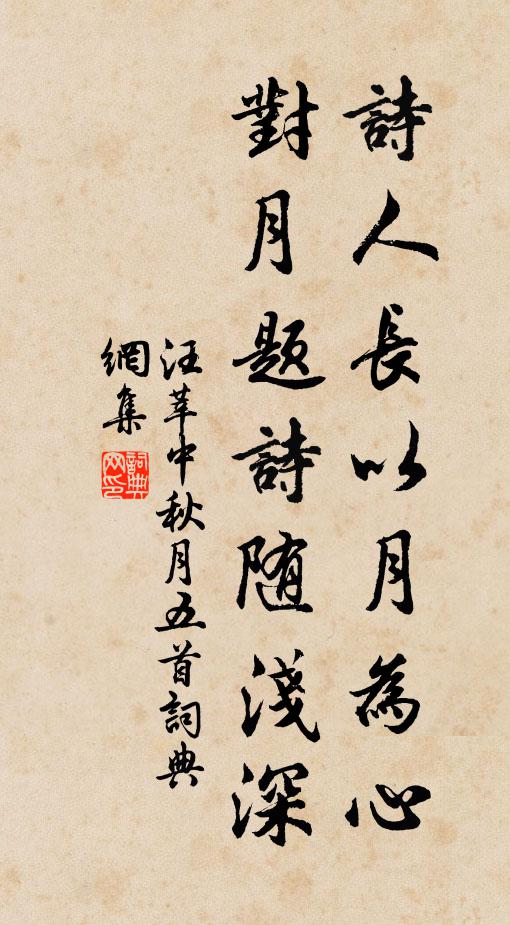 詩人長以月為心
對月題詩随淺深
汪莘中秋月五首詞典
網集
詞典网印